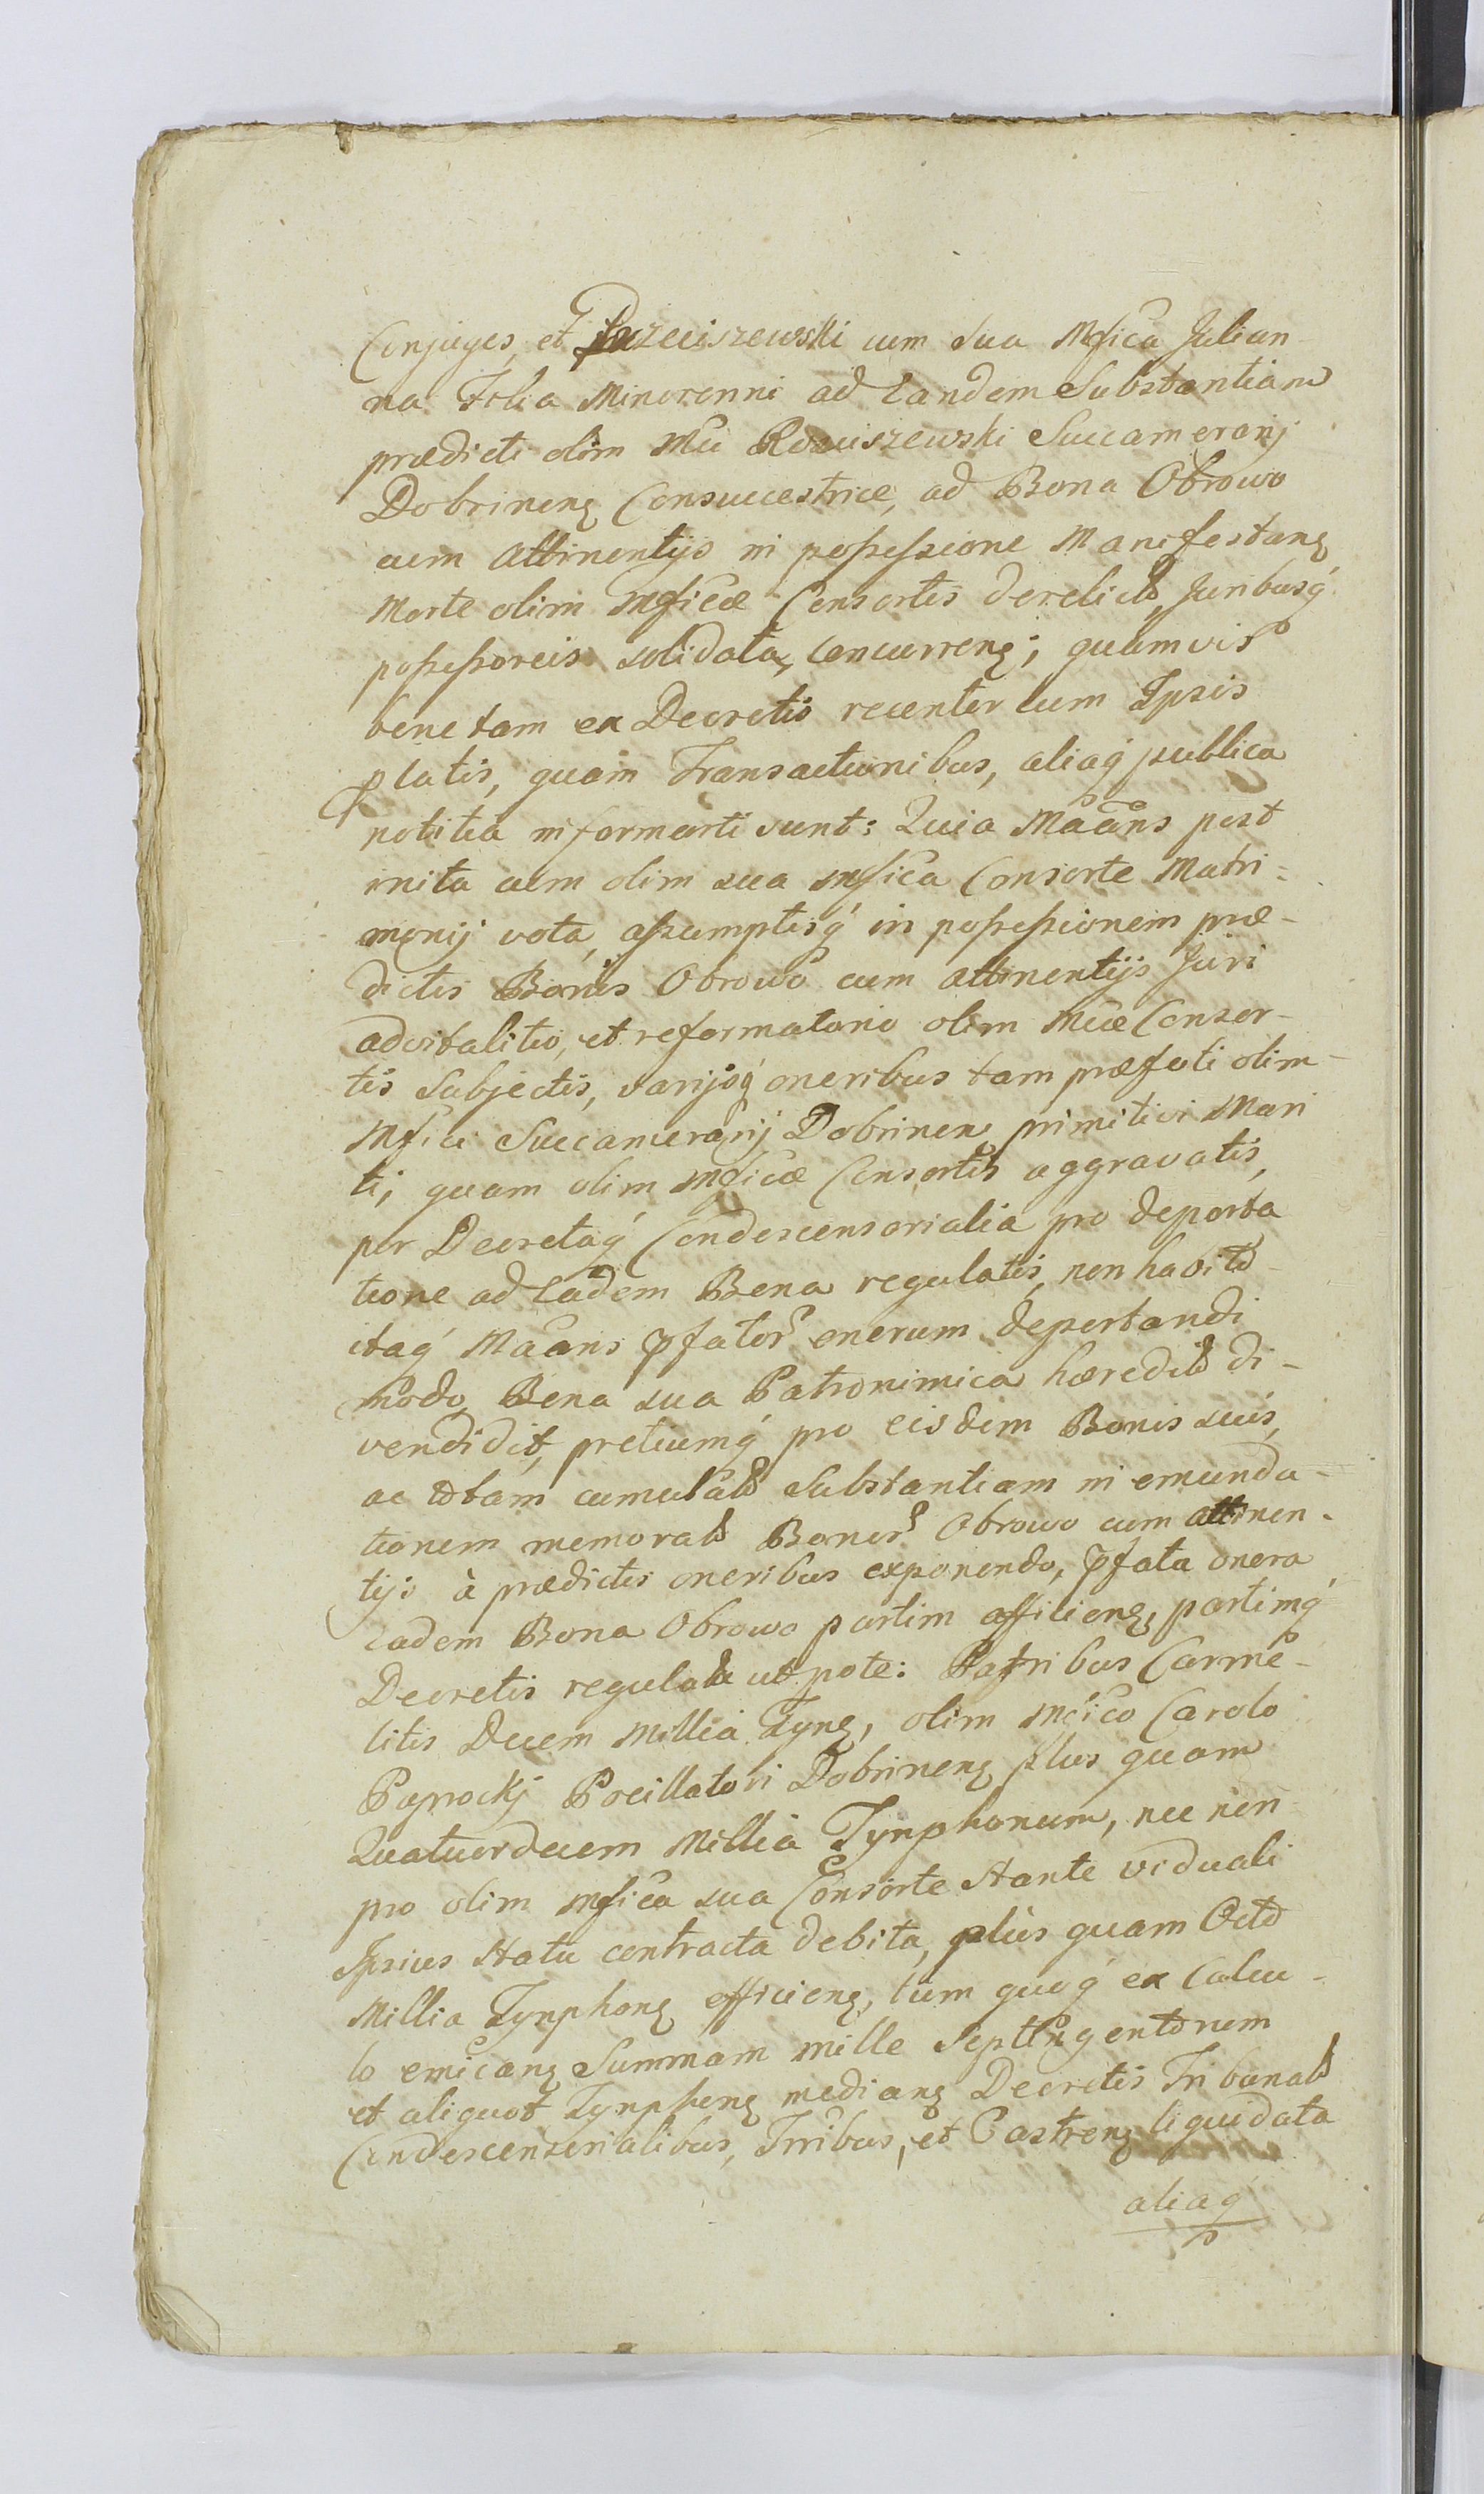 Conjuges, et Przeciszewski cum sua Mfica Julian-
na Filia Minorenni ad Eandem Substantiam
prædicti olim Mci Rosciszewski Succamerarij
Dobrinen Consuccestrice, ad Bona Obrowo
cum attinentijs in possessione Manifestan
Morte olim Mficæ Consortis derelict, Juribusq
possessoreis solidata, concurren; quamvis
bene tam ex Decretis recenter cum Ipsis
platis, quam Transactionibus, aliaq publica
notitia informati sunt: Quia Maans post
inita cum olim sua Mfica Consorte Matri-
monij vota, assumptisq in possessionem præ-
dictis Bonis Obrowo cum attinentijs Juri
advitalitio, et reformatorio olim Mcæ Consor-
tis Subjectis, varijsq oneribus tam præfati olim
Mfici Succamerarij Dobrinen primitivi Mari
ti, quam olim Mficæ Consortis aggravatis,
per Decretaq Condescensorialia pro deporta
tione ad Eadem Bona regulatis, non habito
itaq Maans pfator onerum deportandi
modo, Bona sua Patronimica hæredit di-
vendidit, pretiumq pro eisdem Bonis suis,
ac totam cumulat Substantiam in emunda-
tionem memorat Bonor Obrowo cum attinen-
tijs à prædictis oneribus exponendo, pfata onera
eadem Bona Obrowo partim afficien, partimq
Decretis regulata utpote: Patribus Carme-
litis Decem Millia Tyn, olim Mcico Carolo
Paprockj Pocillatori Dobrinen plus quam
Quatuordecem Millia Tynphonum, nec non
pro olim Mfica sua Consorte Stante viduali
Ipsius Statu contracta debita, plus quam Octo
Millia Tynphon efficien, tum quoq ex Calcu-
lo emican Summam mille Septingentorum
et aliquot Tynphon median Decretis Tribunal
Condescensorialibus, Trribus, et Castren liquidata
aliaq